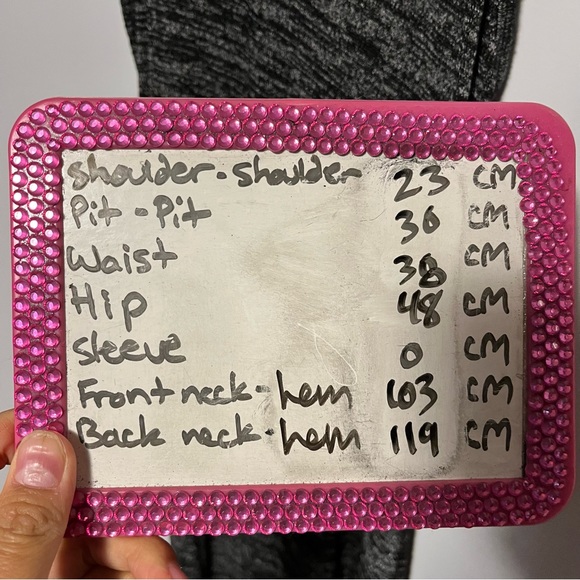 shoulder-shoulder 23 CM
Pit-Pit 36 CM
Waist 38 CM
Hip 48 CM
Sleeve 0 CM
Front neck-hem 103 CM
Back neck-hem 119 CM